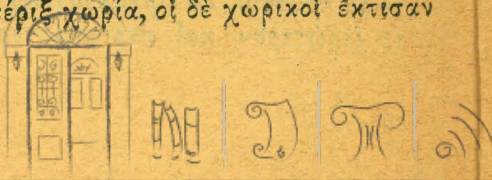 πέριξ χωρία, οἱ δὲ χωρικοὶ ἔκτισαν